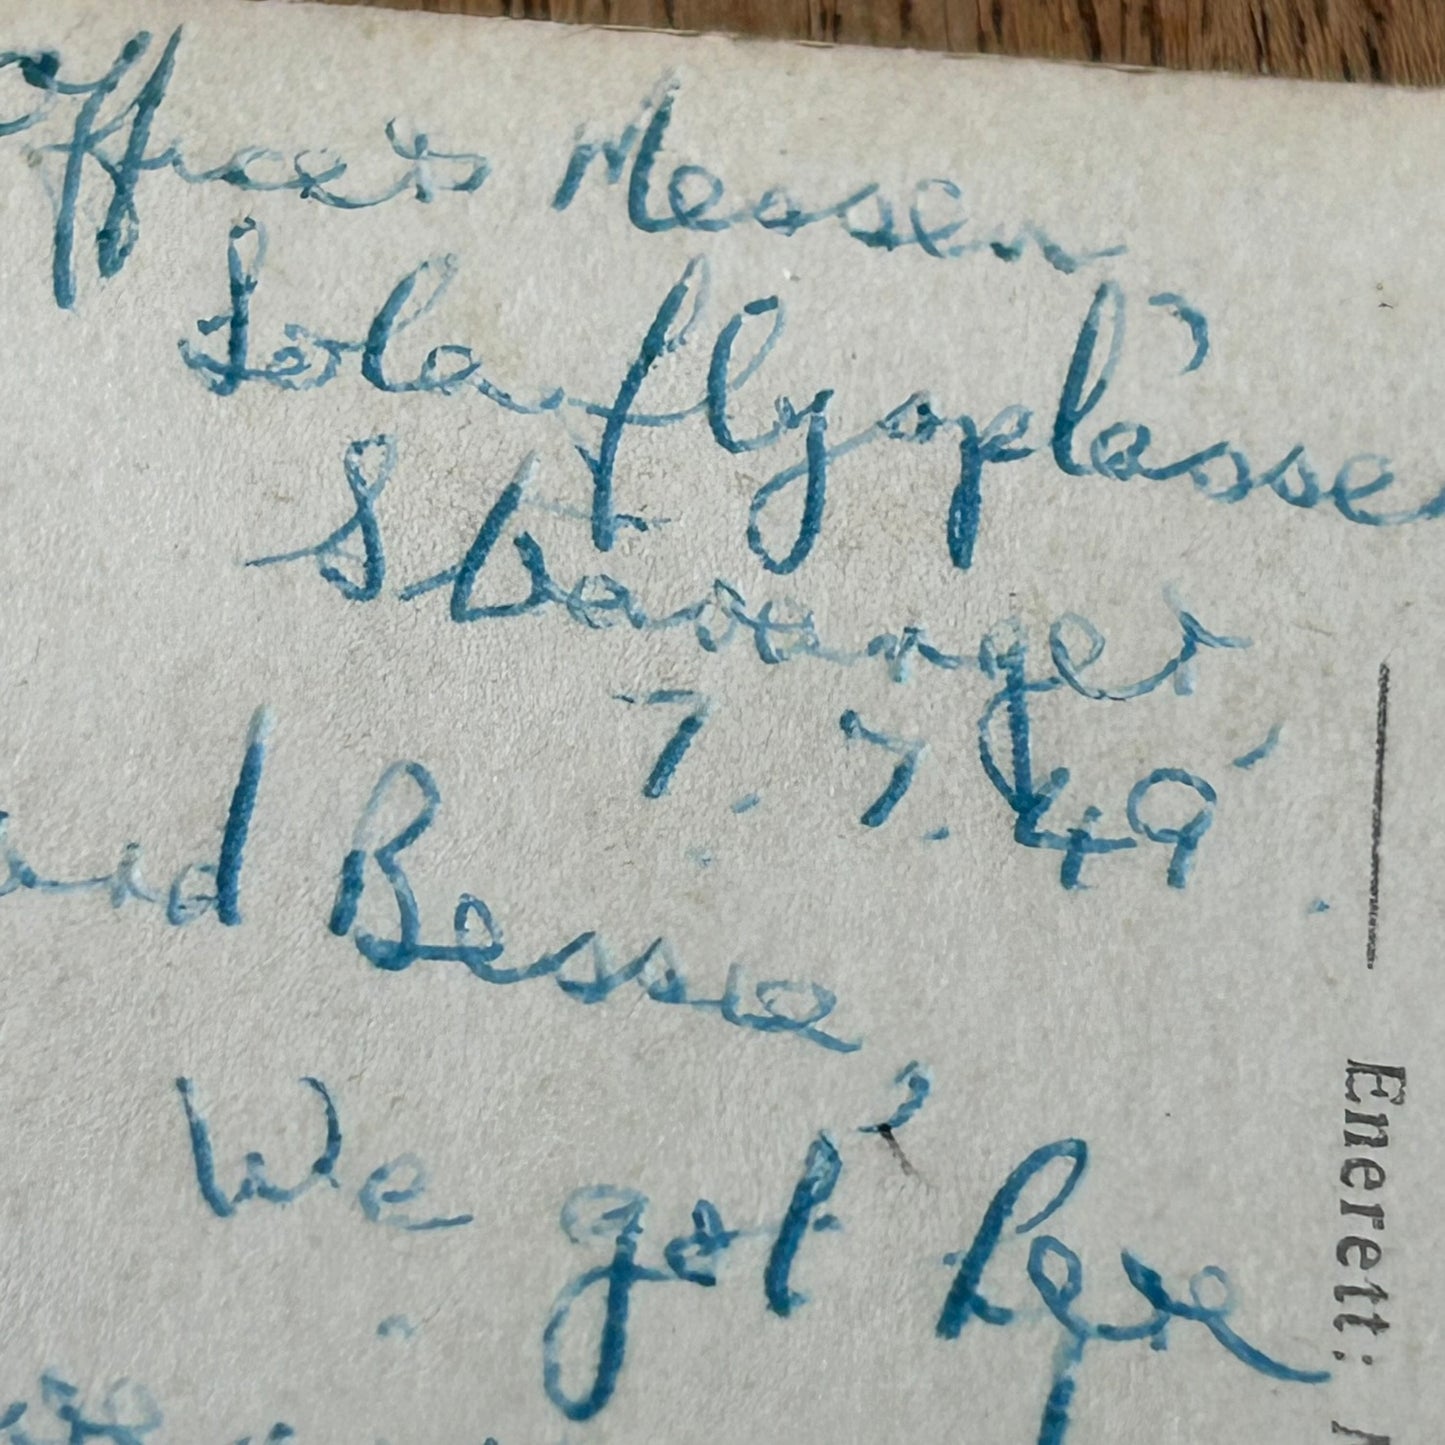 Officers Messen
Sola flyoplassen
Stavanger
7.7.49'.
and Besse,
We got here
Enerett: